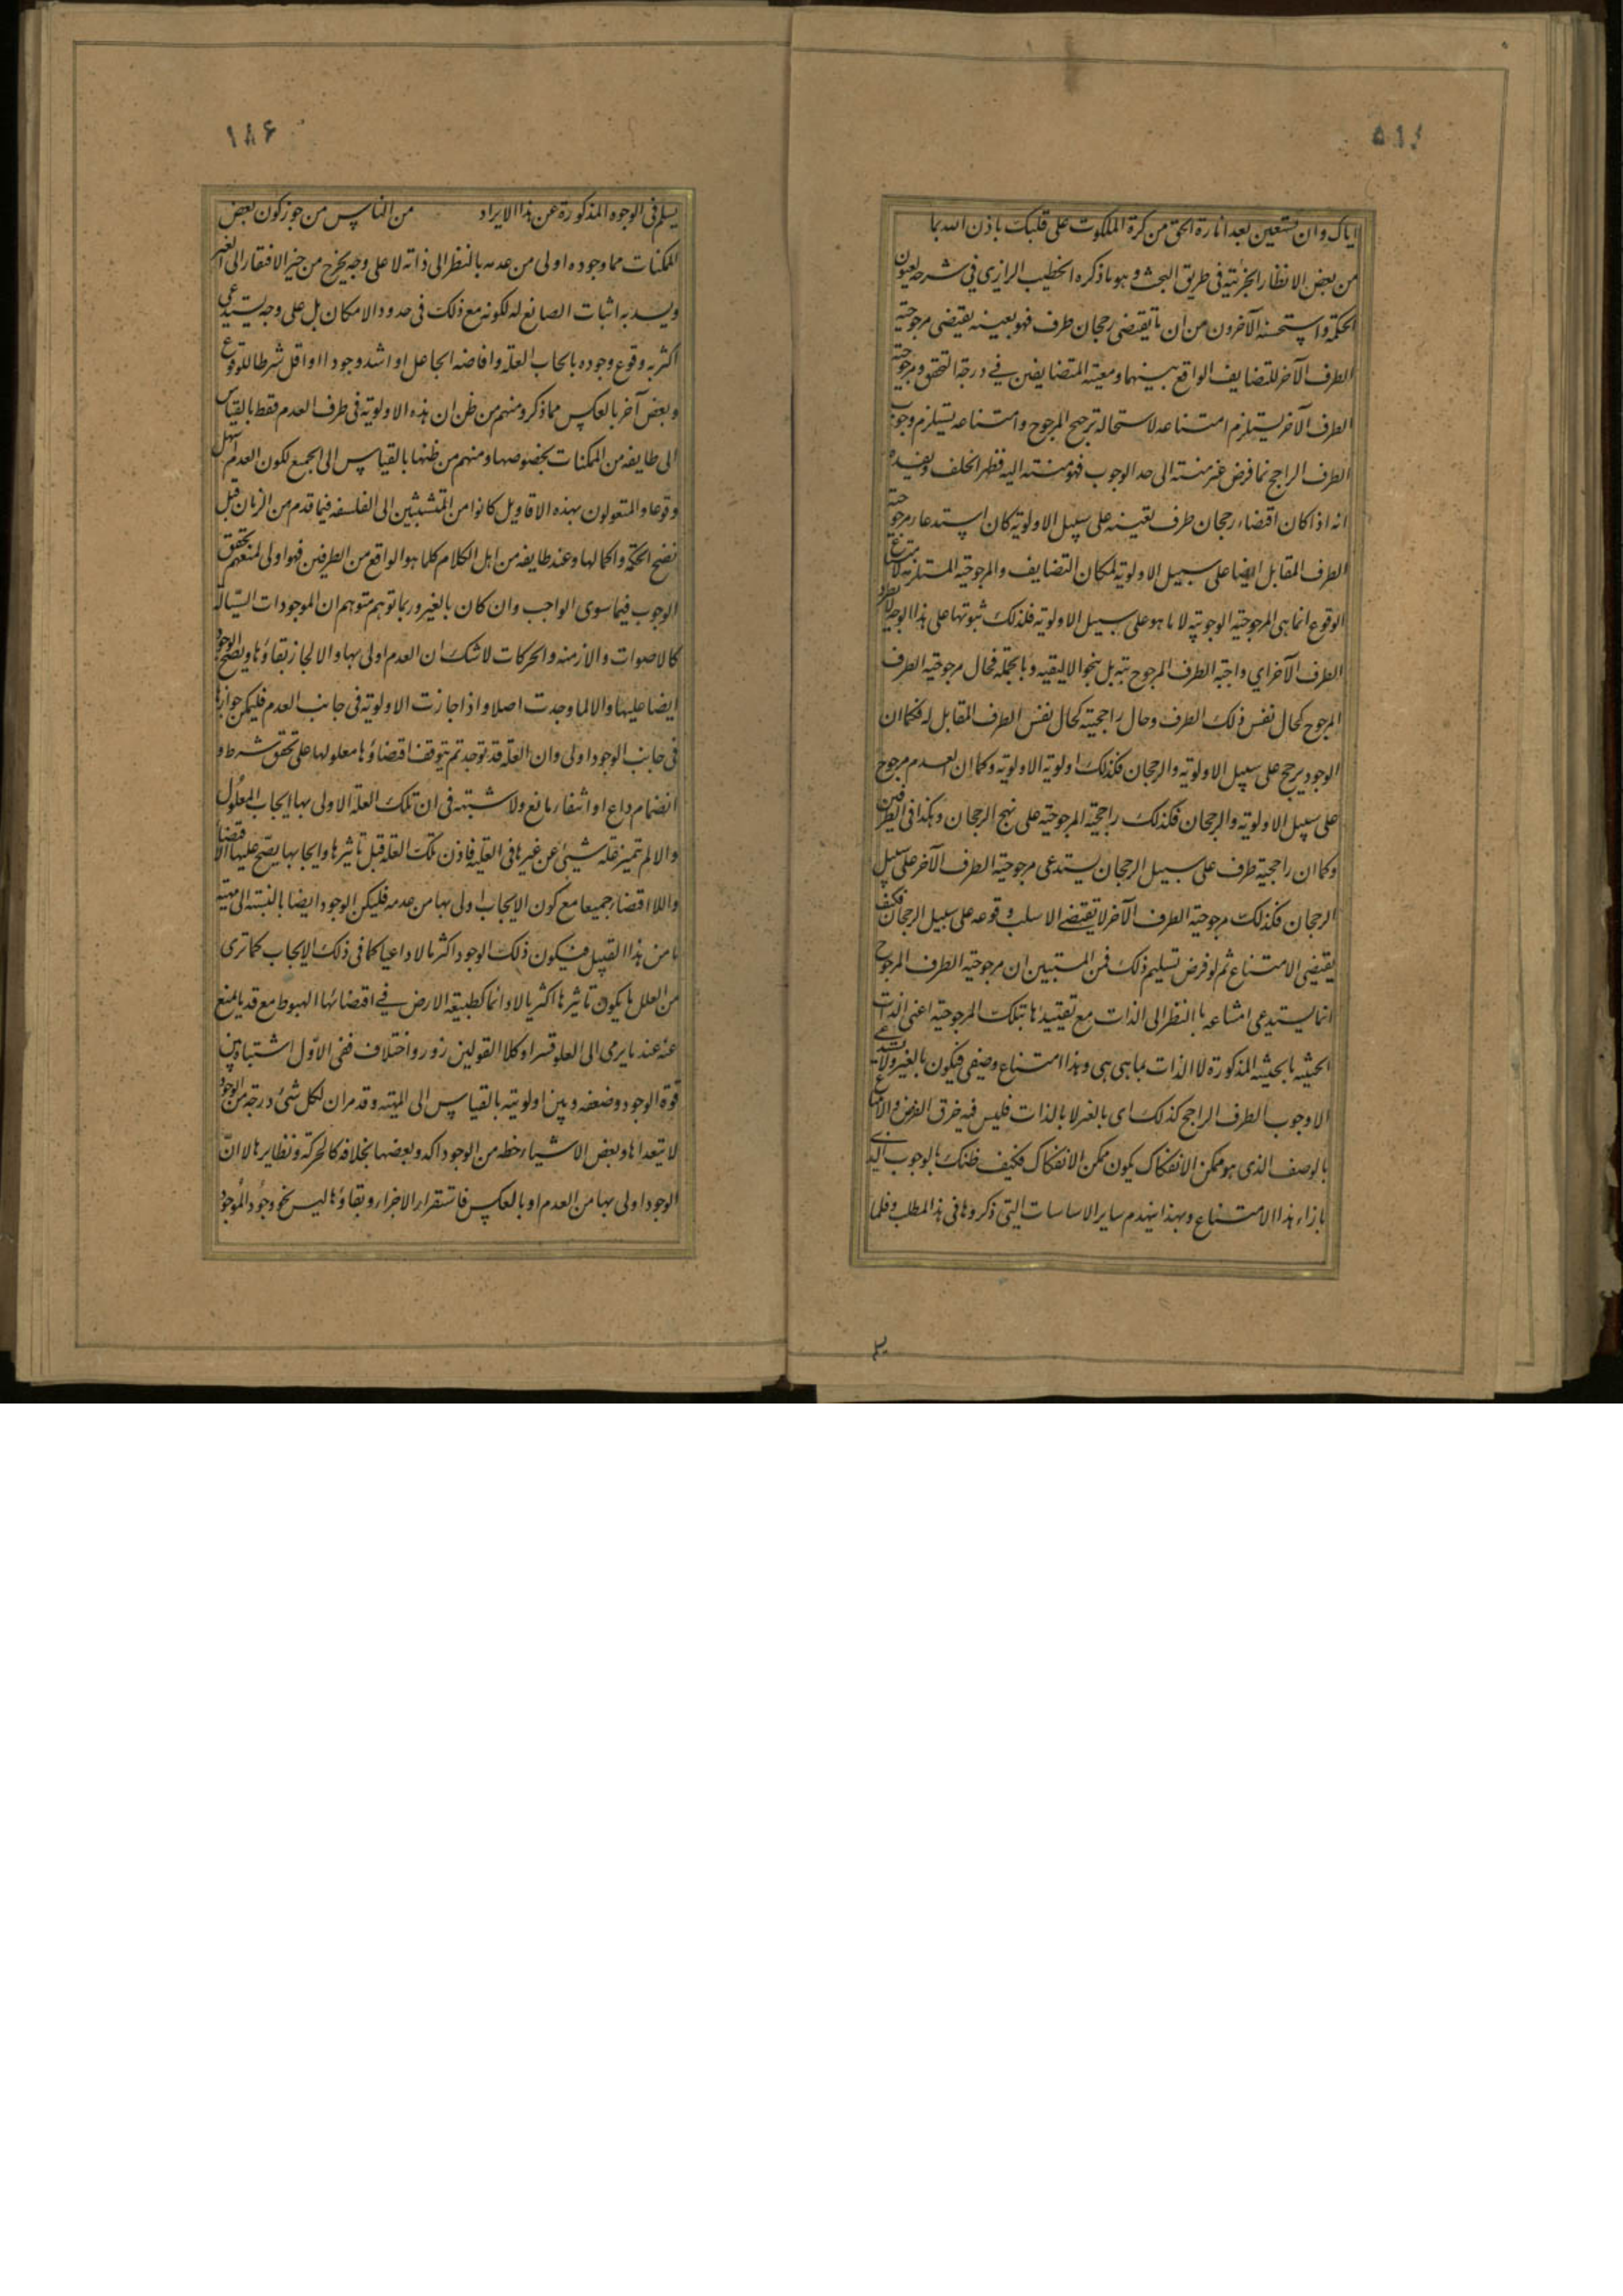 ١٨٥
اياك وان تستعين بعد انارة الحق من كرة الملكوت على قلبك باذن الله بما
من بعض الانظار الجزئية فى طريق البحث وهو ما ذكره الخطيب الرازي في شرحه لعيون
الحكمة واستحسنه الآخرون من ان ما يقتضى رجحان طرف فهو بعينه يقتضى مرجوحية
الطرف الآخر للتضايف الواقع بينهما ومعية المتضايفين في درجة التحقق ومرجوحية
الطرف الآخر يستلزم امتناعه لاستحالة ترجيح المرجوح وامتناعه يستلزم وجوب
الطرف الراجح فما فرض غير منته الى حد الوجوب فهو منته اليه فظهر الخلف ويفيده
انه اذا كان اقتضاء رجحان طرف بعينه على سبيل الاولوية كان استدعاء مرجوحية
الطرف المقابل ايضا على سبيل الاولوية لمكان التضايف والمرجوحية المستلزمة لامتناع
الوقوع انما هى المرجوحية الوجوبية لا ما هو على سبيل الاولوية فلذلك ثبوتها على هذا الوجه
الطرف الآخر اي راجية الطرف المرجوح بتة بل بنحو الاليقية وبالجملة فحال مرجوحية الطرف
المرجوح كحال نفس ذلك الطرف وحال راجحيته كحال نفس الطرف المقابل له فكما ان
الوجود يرجح على سبيل الاولوية والرجحان فكذلك اولوية الاولوية وكما ان العدم مرجوح
على سبيل الاولوية والرجحان فكذلك راجحية المرجوحية على نهج الرجحان وهكذا فى الطرفين
وكما ان راجحية طرف على سبيل الرجحان يستدعى مرجوحية الطرف الآخر على سبيل
الرجحان فكذلك مرجوحية الطرف الآخر لا يقتضے الا سلب وقوعه على سبيل الرجحان فكيف
يقتضى الامتناع ثم لو فرض تسليم ذلك فمن المستبين ان مرجوحية الطرف المرجوح
انما يستدعى امتناعه بالنظر الى الذات مع تقييدها بتلك المرجوحية اعنى الذات
الحيثية بالحيثية المذكورة لا الذات بما هى هى وهذا امتناع وصفى فيكون بالغير ولا يستدعے
الا وجوب الطرف الراجح كذلك اى بالغير لا بالذات فليس فيه خرق الفرض والامتناع
بالوصف الذى هو ممكن الانفكاك يكون ممكن الانفكاك فكيف ظنك بالوجوب الذے
بازاء هذا الامتناع وبهذا ينهدم ساير الاساسات التى ذكروها فى هذا المطلب وقلما
١٨۶
يسلم فى الوجوه المذكورة عن هذا الايراد من الناس من جوز كون بعض
الممكنات مما وجوده اولى من عدمه بالنظر الى ذاته لا على وجه يخرج من حيز الافتقار الى الغير
ويسد به اثبات الصانع له لكونه مع ذلك فى حدود الامكان بل على وجه يستدعي
اكثرية وقوع وجوده بايجاب العلة وافاضة الجاعل او اشد وجودا او اقل شرطا للوقوع
وبعض آخر بالعكس مما ذكر ومنهم من ظن ان هذه الاولوية فى طرف العدم فقط بالقياس
الى طايفه من الممكنات بخصوصها ومنهم من ظنها بالقياس الى الجميع لكون العدم اسهل
وقوعا والمتعولون بهذه الاقاويل كانوا من المتشبثين الى الفلسفه فيما قدم من الزمان قبل
نضج الحكمة واكمالها وعند طايفه من اهل الكلام كلما هو الواقع من الطرفين فهو اولى لمنعهم تحقق
الوجوب فيما سوى الواجب وان كان بالغير وربما توهم متوهم ان الموجودات السيالة
كالاصوات والازمنه والحركات لا شك ان العدم اولى بها والا لجاز بقاؤها ويصح الوجود
ايضا عليها والا لما وجدت اصلا واذا جازت الاولوية فى جانب العدم فليمكن جوازها
فى جانب الوجود اولى وان العلة قد توجد ثم يتوقف اقتضاؤها معلولها على تحقق شرط و
انضمام داع او انتفاء مانع ولا شبهة فى ان تلك العلة الاولى بها ايجاب المعلول
والا لم تتميز علة شيئ عن غيرها فى العلية فاذن تلك العلة قبل تأثيرها وايجابها يصح عليها الاقتضاء
واللااقتضاء جميعا مع كون الايجاب اولى بها من عدمه فليكن الوجود ايضا بالنسبة الى مهية
ما من هذا القبيل فيكون ذلك الوجود اكثريا لا داعيا كما فى ذلك الايجاب كما ترى
من العلل ما يكون تأثيرها اكثريا لا دائما كطبيعة الارض في اقتضائها الهبوط مع قد يمنع
عنه عند ما يرمى الى العلو قسرا وكلا القولين زور واختلاف ففى الاول اشتباه بين
قوة الوجود وضعفه وبين اولويته بالقياس الى المهية وقد مر ان لكل شئ درجة من الوجود
لا يتعداها وبعض الاشياء حظه من الوجود اكد وبعضها بخلافه كالحركة ونظايرها لا ان
الوجود اولى بها من العدم او بالعكس فاستقرار الاجزاء وبقاؤها ليس نحو وجود الموجود